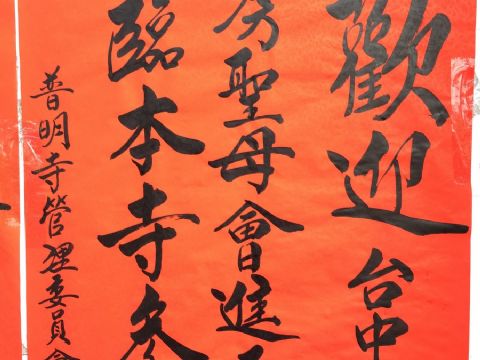 歡迎台中
聖母會進
臨本寺參
普明寺管理委員會